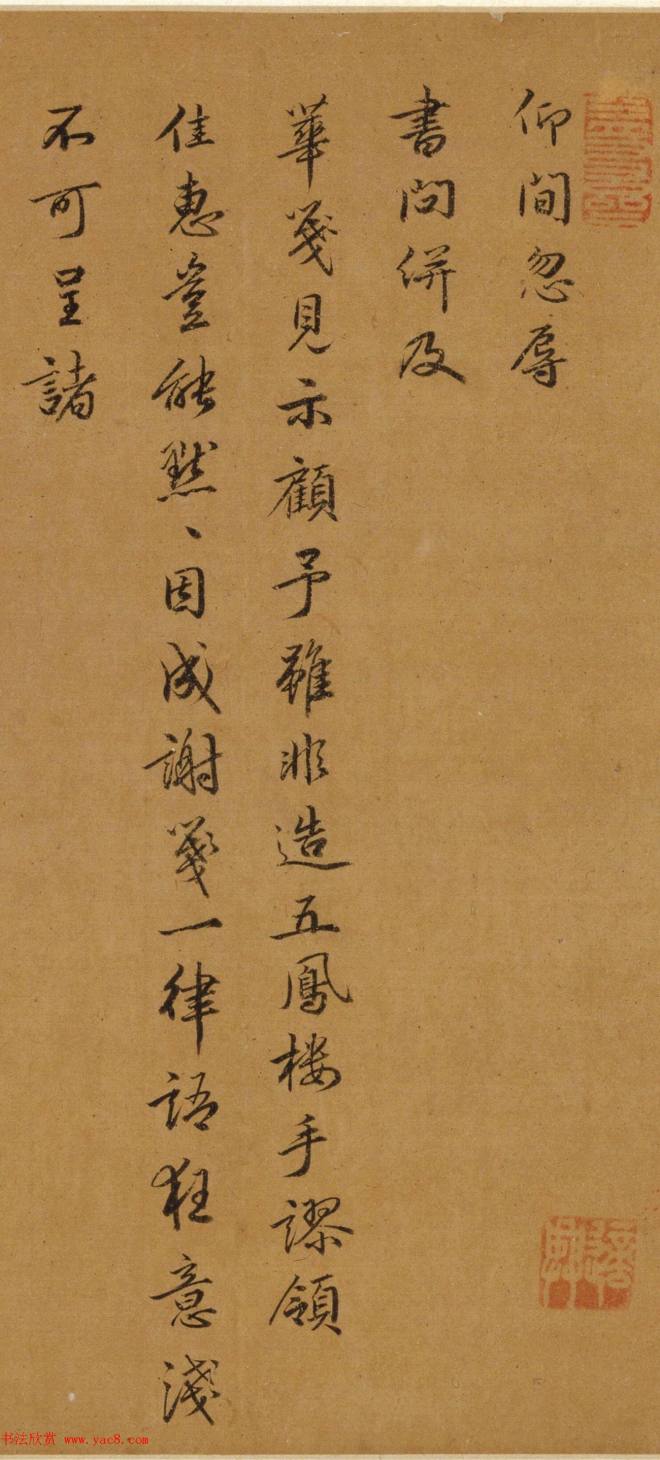 仰間忽辱
書問併及
華箋見示顧予雖非造五鳳樓手謬領
佳惠豈能默、因成謝箋一律語狂意淺
不可呈諸
书法欣赏 www.yac8.com